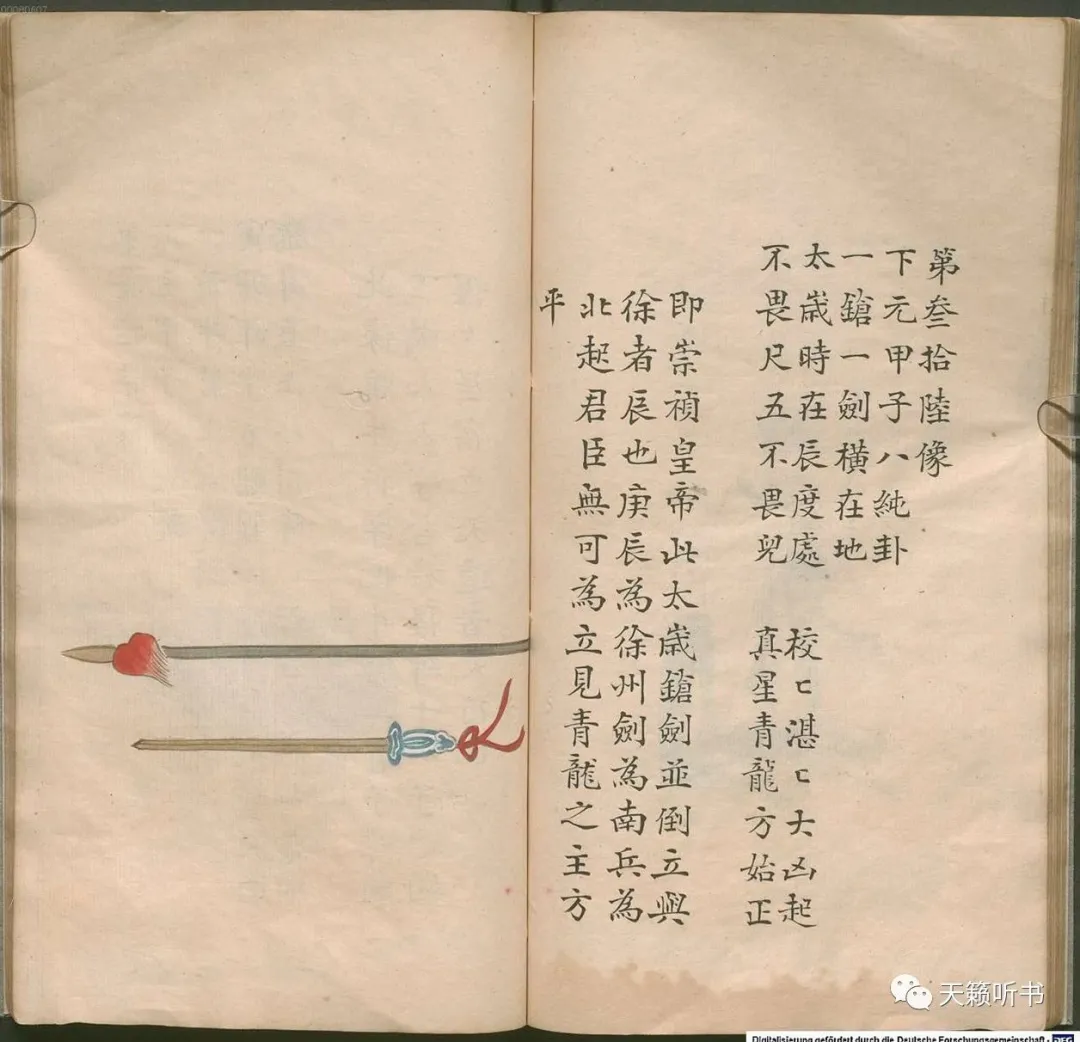 第叁拾陸像
下元甲子八純卦
一鎗一劍橫在地
太歲時在辰度處 校ㄈ湛ㄈ大凶起
不畏尺五不畏兕 真星青龍方始正
即崇禎皇帝此太歲鎗劍並倒立興
徐者辰也庚辰為徐州劍為南兵為
北起君臣無可為立見青龍之主方
平
天籁听书
Digitalisierung gefördert durch die Deutsche Forschungsgemeinschaft · DFG